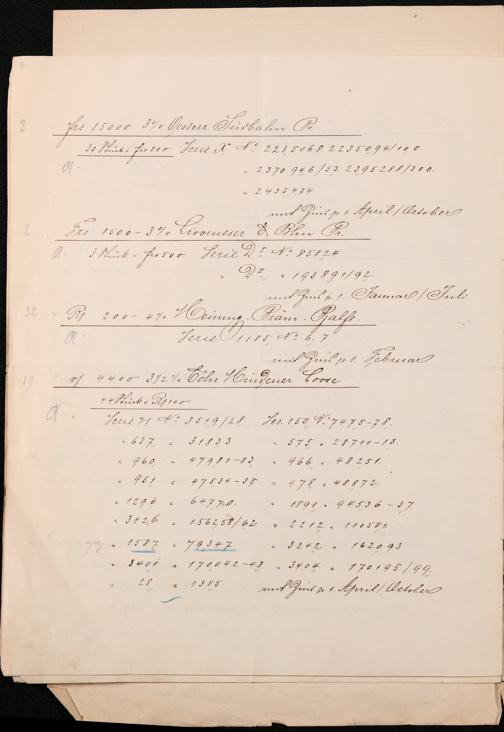 3 frs 15000 3% Oesterr. Südbahn Pr.
30 Stück à frs 500 Serie X No 2235068. 2235094/100.
A. " 2370946/53. 2395288/300.
" 2433474
mit Zins p. 1 April/October
2 Frs 1500 - 3% Livorneser E. Bhn Pr.
A. 3 Stück à frs 500 Serie D No 85824
" D2 " 193891/92.
mit Zins p. 1. Januar/Juli
32 Rf 200 - 4% Meining. Präm. Pfdbfe.
A. Serie 1105 No 6. 7.
mit Zins p. 1. Februar
19 4400 3½% Cöln Mindener Loose
44 Stück à Rf 100
A. Serie 71 No 3519/28. Ser. 150 No 7475-78.
" 637 " 31833 " 575 " 28711-13.
" 960 " 47981-83 " 966 " 48251.
" 951 " 47534-35 " 978 " 48872.
" 1296 " 64770. " 1891 " 94536-37
" 3126 " 156258/62 " 2212 " 110582
" 1587 " 79347 " 3242 " 162093
" 3401 " 170042-43 " 3404 " 170195/99.
" 28 " 1385 mit Zins p. 1 April/October